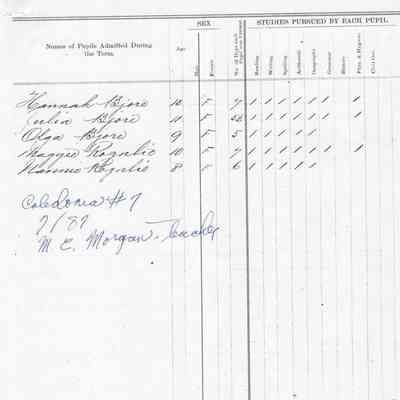 SEX
STUDIES PURSUED BY EACH PUPIL.
Names of Pupils Admitted During the Term.
Age
Male
Female
No. of Days each Pupil was Present
Reading
Writing
Spelling
Arithmetic
Geography
Grammar
History
Phys. & Hygiene
Civil Gov.
Hannah Bjore 12 F 7 / / / / / / /
Julia Bjore 11 F / / / / / / /
Olga Bjore 9 F 5 / / / / /
Maggie Rognlie 10 F 7 / / / / / / /
Hannie Rognlie 8 F 6 / / / / /
Caledonia #7
7/87
M E. Morgan - Teacher